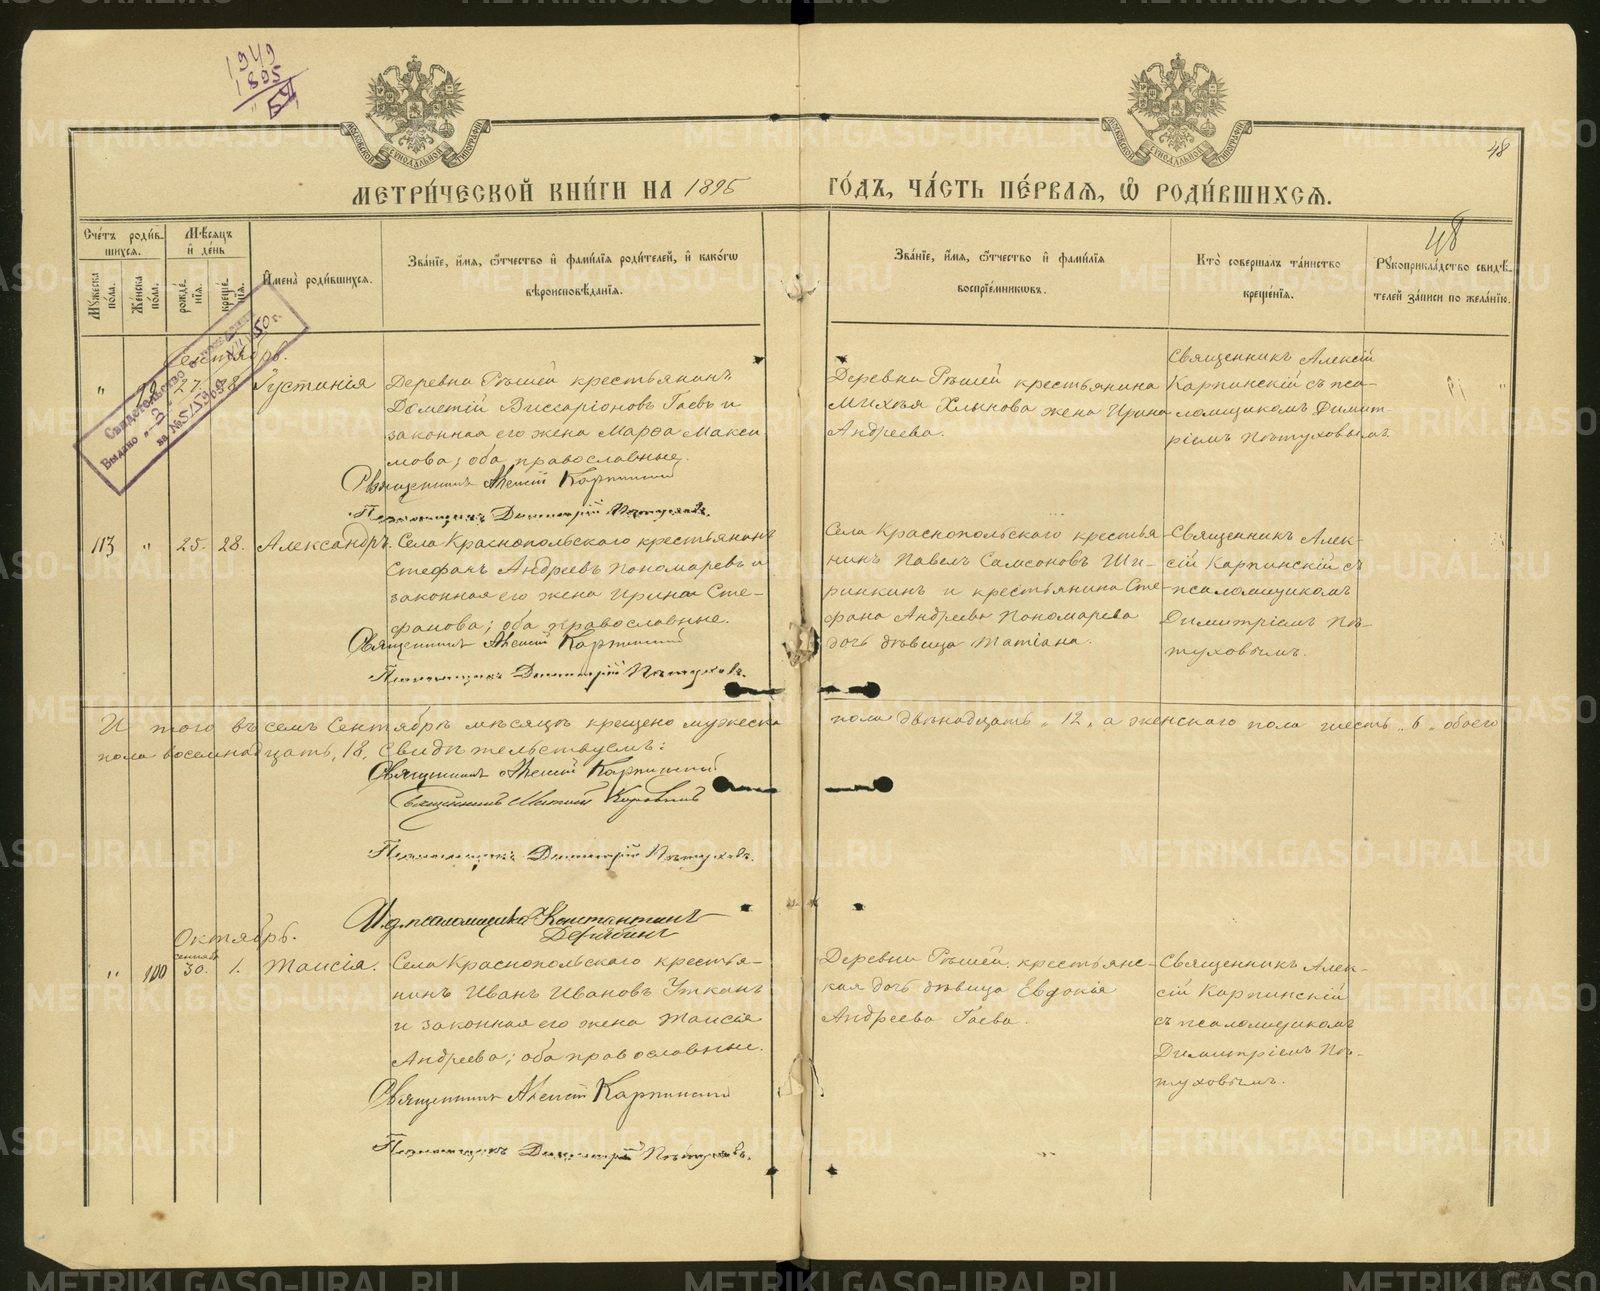 1949
1895
54
МОСКОВСКОЙ СУНОДАЛЬНОЙ ТИПОГРАФІИ
МОСКОВСКОЙ СУНОДАЛЬНОЙ ТИПОГРАФІИ
48
МЕТРИ́ЧЕСКОЙ КНИ́ГИ НА 1895 ГО́ДЪ, ЧА́СТЬ ПЕ́РВАЯ, Ѽ РОДИ́ВШИХСѦ.
48
Счётъ роди́в-
шихся.
Мѣ́сяцъ
и҆ де́нь
Мꙋжеска по́ла.
Же́нска по́ла.
рожде́-
нїя.
креще́-
нїя.
И҆мена̀ роди́вшихся.
Зва́нїе, и҆́мя, ѻ҆́тчество и҆ фами́лїя роди́телей, и҆ како́гѡ
вѣроисповѣ́данїя.
Зва́нїе, и҆́мя, ѻ҆́тчество и҆ фами́лїя
воспрїе́мникѡвъ.
Кто̀ соверша́лъ та́инство
креще́нїя.
Рꙋкоприкла́дство свидѣ́-
телей за́писи по жела́нїю.
Свидетельство о
Выдано „3“ VII 1950 г.
за №
Сентябрь.
„ 99 27. 28. Іустинія
Деревни Рѣшей крестьянинъ
Дометій Виссаріоновъ Гаевъ и
законная его жена Марѳа Макси
мова; оба православные.
Священникъ Алексій Карпинскій
Псаломщикъ Димитрій Пѣтуховъ.
Деревни Рѣшей крестьянина
Михея Хлынова жена Ирина
Андреева.
Священникъ Алексій
Карпинскій съ пса-
ломщикомъ Димит-
ріемъ Пѣтуховымъ.
113 „ 25. 28. Александръ.
Села Краснопольскаго крестьянинъ
Стефанъ Андреевъ Пономаревъ и
законная его жена Ирина Сте-
фанова; оба православные.
Священникъ Алексій Карпинскій
Псаломщикъ Димитрій Пѣтуховъ.
Села Краснопольскаго крестья
нинъ Павелъ Самсоновъ Ши-
ринкинъ и крестьянина Сте-
фана Андреева Пономарева
дочь дѣвица Татіана.
Священникъ Алек-
сій Карпинскій съ
псаломщикомъ
Димитріемъ Пѣ-
туховымъ.
И того въ семъ Сентябрѣ мѣсяцѣ крещено мужеска пола двѣнадцать „ 12 „ а женскаго пола шесть „ 6 „ обоего
пола восемнадцать, 18, Свидѣтельствуемъ:
Священникъ Алексій Карпинскій
Священникъ
Псаломщикъ Димитрій Пѣтуховъ.
И. д. псаломщика Константинъ
Дерябинъ
Октябрь.
„ 100 сентяб 30. 1. Таисія.
Села Краснопольскаго крестья-
нинъ Иванъ Ивановъ Уткинъ
и законная его жена Таисія
Андреева; оба православные.
Священникъ Алексій Карпинскій
Псаломщикъ Димитрій Пѣтуховъ.
Деревни Рѣшей крестьянс-
кая дочь дѣвица Евдокія
Андреева Гаева.
Священникъ Алек-
сій Карпинскій
съ псаломщикомъ
Димитріемъ Пѣ-
туховымъ.
METRIKI.GASO-URAL.RU